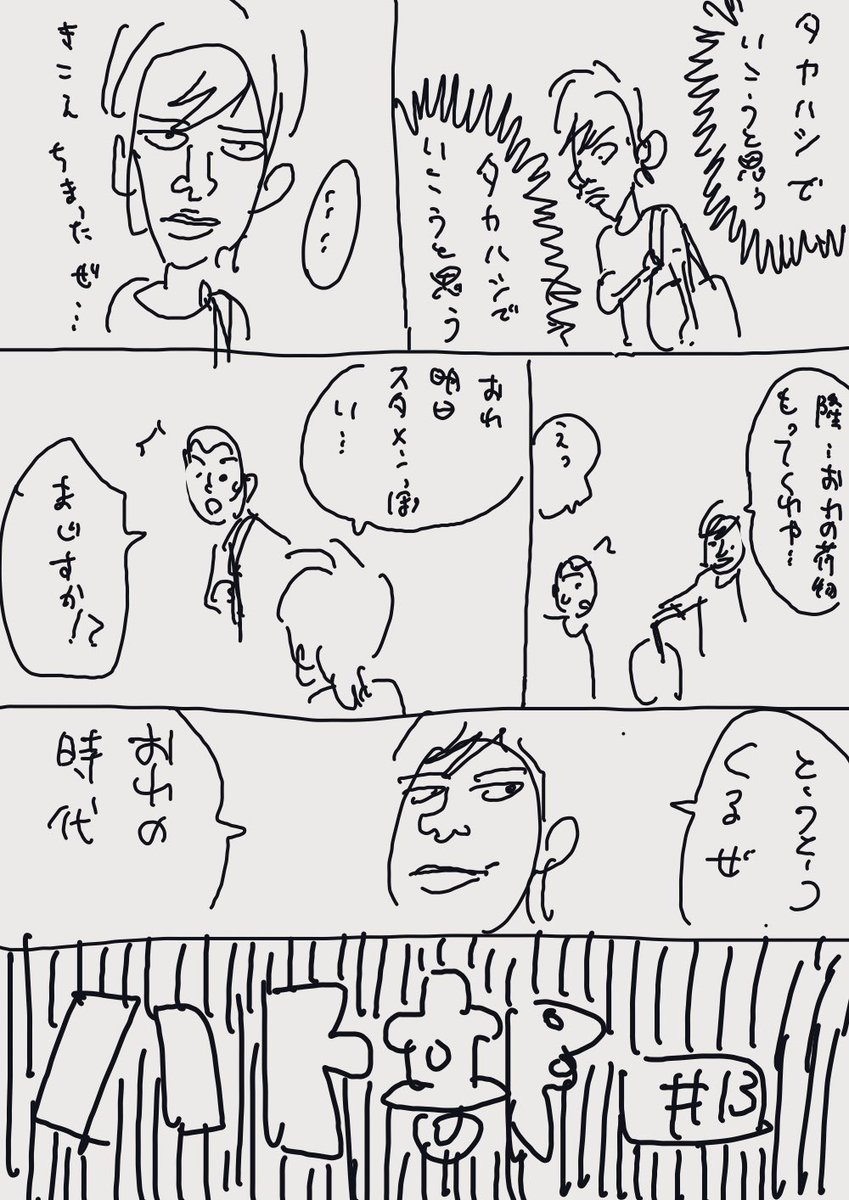 タカハシで
いこうと思う
タカハシで
いこうと思う
……
きこえ
ちまったぜ…
陸…おれの荷物
もってくれや…
えっ
おれ
明日
スタメンっぽ
い…
まじすか!?
とうとう
くるぜ
おれの
時代
#13